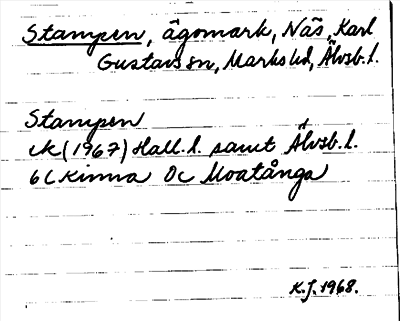 Stampen, ägomark, Näs, Karl
Gustavs sn, Marks hd, Älvsb. l.
Stampen
ek (1967) Hall. l. samt Älvsb. l.
6C Kinna 0c Moatånga
K.J. 1968.